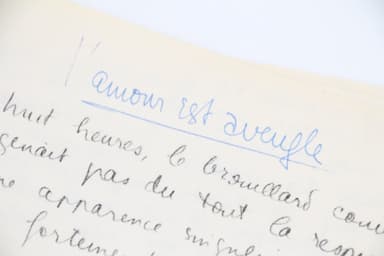 l'amour est aveugle
huit heures, le brouillard com
gênait pas du tout la resp
ne apparence singul
forteme